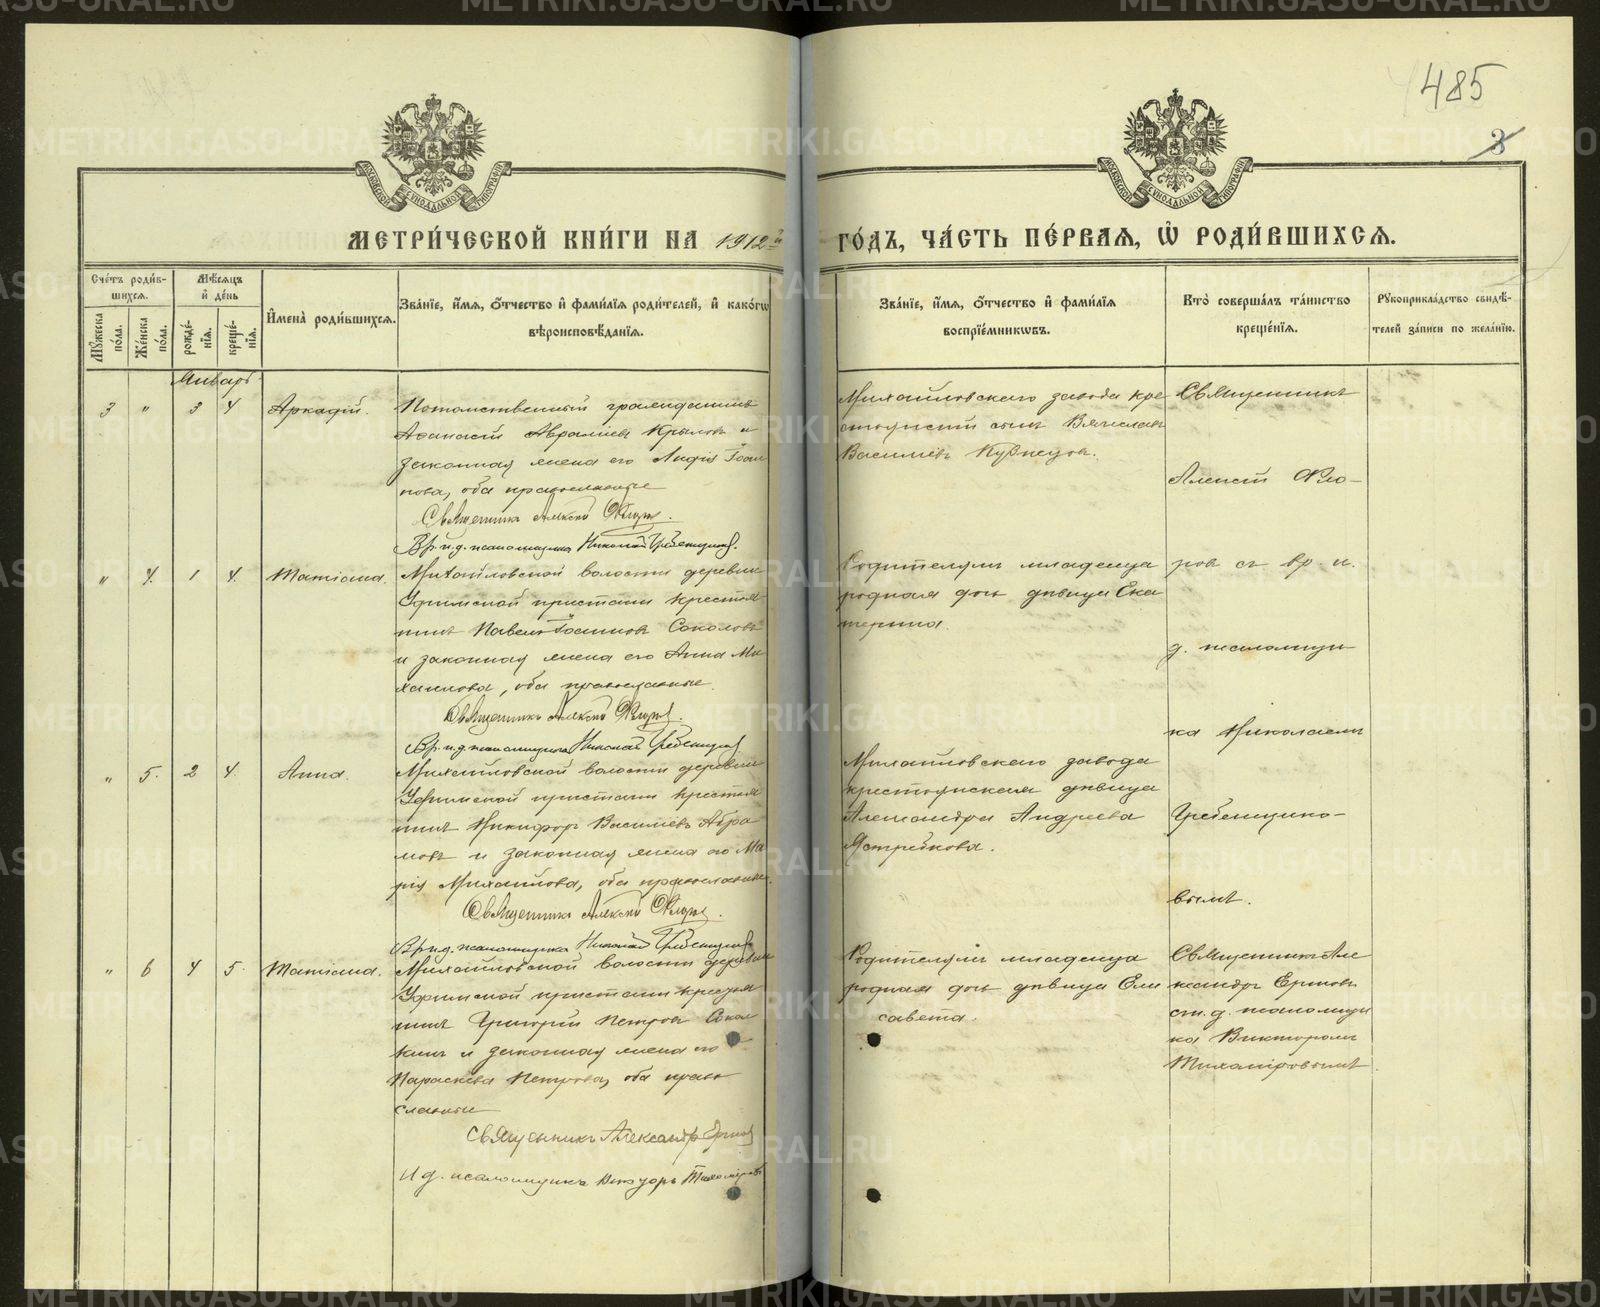 485
3
МЕТРИ́ЧЕСКОЙ КНИ́ГИ НА 1912й ГО́ДЪ, ЧА́СТЬ ПЕ́РВАЯ, Ѡ҆ РОДИ́ВШИХСѦ.
Сче́тъ роди́в-
шихся.
Мѣ́сяцъ
и҆ де́нь
Мꙋ́жеска по́ла.
Же́нска по́ла.
рожде́-
нїя.
креще́-
нїя.
И҆мена̀ роди́вшихся.
Зва́нїе, и҆́мя, ѻ҆́тчество и҆ фами́лїя роди́телей, и҆ како́гѡ
вѣроисповѣ́данїя.
Зва́нїе, и҆́мя, ѻ҆́тчество и҆ фами́лїя
воспрїе́мникѡвъ.
Кто̀ соверша́лъ та́инство
креще́нїя.
Рꙋкоприкла́дство свидѣ́-
телей за́писи по жела́нїю.
Январь
3 " 3 4 Аркадій.
Потомственный гражданинъ
Аѳанасій Авраміевъ Крыловъ и
законная жена его Лидія Іоан-
нова, оба православные
Священникъ Алексій Флоровъ.
Вр. и. д. псаломщика Николай Гребенщиковъ.
Михайловскаго завода кре
стьянскій сынъ Вячеславъ
Василіевъ Кузнецовъ.
Священникъ
Алексій Фло-
ровъ съ вр. и.
д. псаломщи-
ка Николаемъ
Гребенщико-
вымъ.
" 4. 1 4. Татіана.
Михайловской волости деревни
Уфимской пристани крестья-
нинъ Павелъ Іоанновъ Соколовъ
и законная жена его Анна Ми-
хаилова, оба православные.
Священникъ Алексій Флоровъ.
Вр. и. д. псаломщика Николай Гребенщиковъ.
Родителямъ младенца
родная дочь дѣвица Ека
терина.
" 5. 2 4. Анна.
Михайловской волости деревни
Уфимской пристани крестья
нинъ Никифоръ Василіевъ Абра
мовъ и законная жена его Ма
рія Михайлова, оба православные.
Священникъ Алексій Флоровъ.
Вр. и. д. псаломщика Николай Гребенщиковъ
Михайловскаго завода
крестьянская дѣвица
Александра Андреева
Ястребкова.
" 6 4 5. Татіана.
Михайловской волости деревни
Уфимской пристани крестья
нинъ Григорій Петровъ Сокол
кинъ и законная жена его
Параскева Петрова, оба право
славные
Священникъ Александръ Ершовъ
И. д. псаломщика Викторъ Тихомировъ
Родителямъ младенца
родная дочь дѣвица Ели
савета.
Священникъ Але
ксандръ Ершовъ
съ и. д. псаломщи
ка Викторомъ
Тихомировымъ.